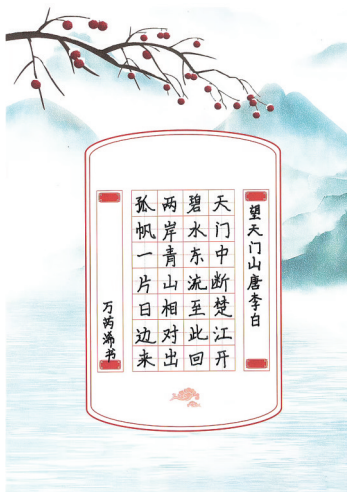 望天门山唐李白
天门中断楚江开
碧水东流至此回
两岸青山相对出
孤帆一片日边来
万芮浠书